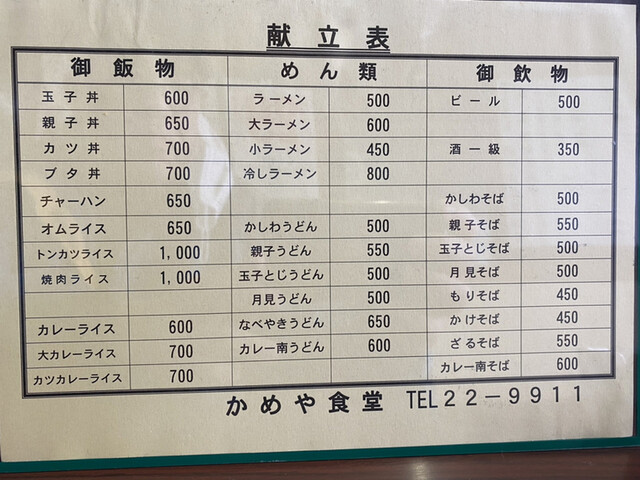 献立表
御飯物 めん類 御飲物
玉子丼 600 ラーメン 500 ビール 500
親子丼 650 大ラーメン 600
カツ丼 700 小ラーメン 450 酒一級 350
ブタ丼 700 冷しラーメン 800
チャーハン 650 かしわそば 500
オムライス 650 かしわうどん 500 親子そば 550
トンカツライス 1,000 親子うどん 550 玉子とじそば 500
焼肉ライス 1,000 玉子とじうどん 500 月見そば 500
月見うどん 500 もりそば 450
カレーライス 600 なべやきうどん 650 かけそば 450
大カレーライス 700 カレー南うどん 600 ざるそば 550
カツカレーライス 700 カレー南そば 600
かめや食堂 TEL22-9911